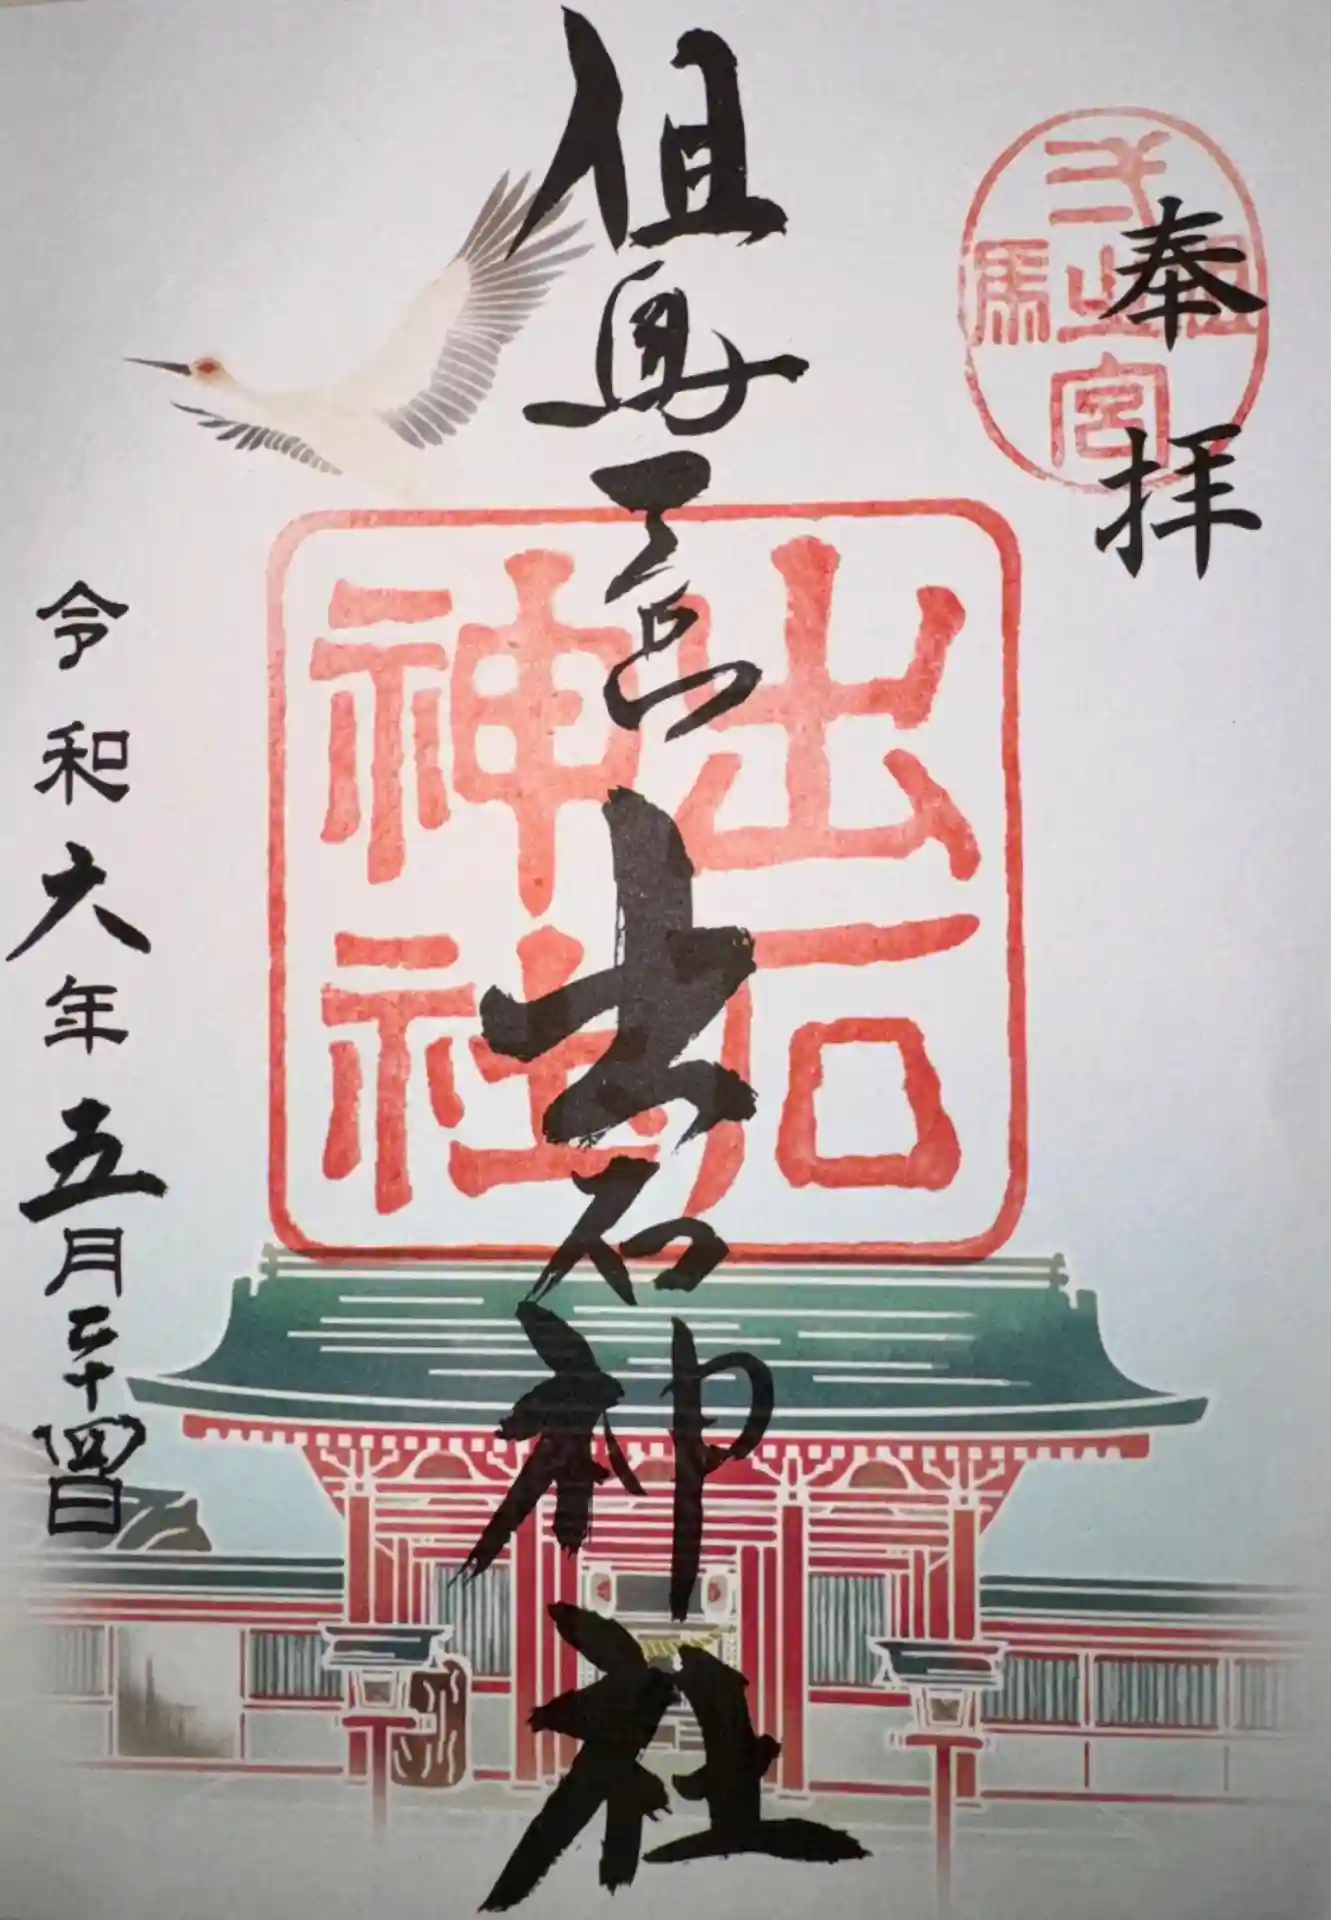 奉拝
但馬弌之宮
但馬一宮出石神社
出石神社
令和六年五月二十四日